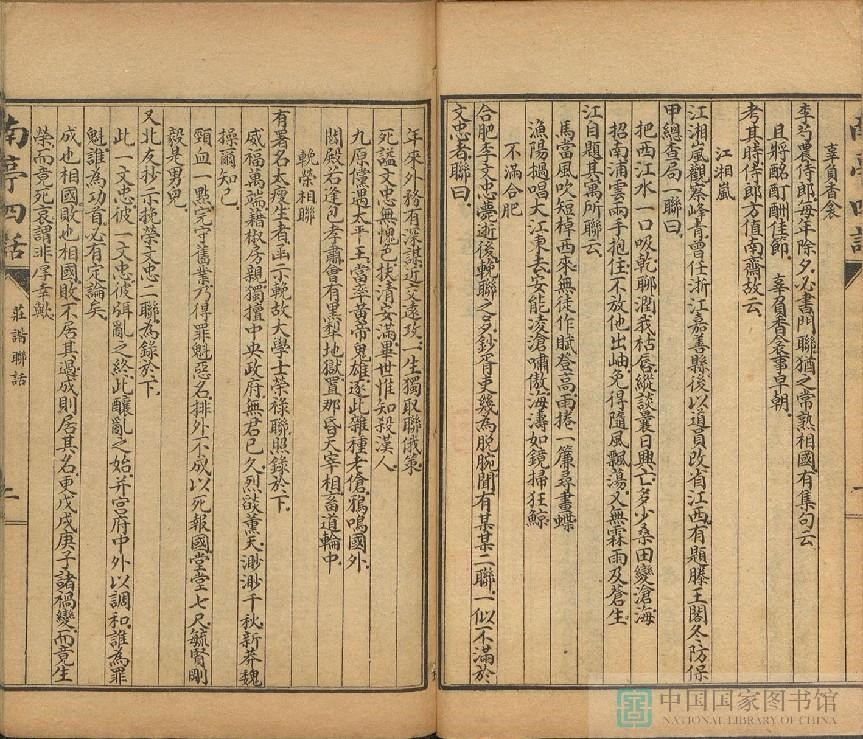 南亭四話
一
辜負香衾
李芍農侍郎每年除夕必書門聯猶之常熟相國有集句云
且將酩酊酬佳節　辜負香衾事早朝
考其時侍郎方值南齋故云
江湘嵐
江湘嵐觀察峰青曾任浙江嘉善縣後以道員改省江西有題滕王閣冬防保
甲總查局一聯曰
把西江水一口吸乾聊潤我枯唇縱談曩日興亡多少桑田變滄海
招南浦雲兩手抱住不放他出岫免得隨風飄蕩又無霖雨及蒼生
江自題其寓所聯云
馬當風吹短棹西來無徒作賦登高雨捲一簾尋畫蝶
漁陽撾唱大江東去安能凌滄嘯傲海濤如鏡掃狂鯨
不滿合肥
合肥李文忠夢逝後輓聯之多鈔胥吏幾為脫腕聞有某某二聯一似不滿於
文忠者聯曰
年來外務有深謀近交遠攻一生獨取聯俄策
死諡文忠無愧色扶清安滿畢世惟知殺漢人
九原儻遇太平王當率黃帝鬼雄逐此雜種老傖鴉鳴國外
閻殿若逢包孝肅會有黑犁地獄置那昏天宰相畜道輪中
輓榮相聯
有署名太瘦生者函示輓故大學士榮祿聯照錄於下
威福萬端藉椒房親獨擅中央政府無君已久烈燄薰天渺渺千秋新莽魏
操爾知己
頸血一點完守舊業乃得罪魁惡名排外不成以死報國堂堂七尺毓賢剛
毅是男兒
又北友抄示挽榮文忠二聯為錄於下
此一文忠彼一文忠彼弭亂之終此釀亂之始并宮府中外以調和誰為罪
魁誰為功首必有定論矣
成也相國敗也相國敗不居其過成則居其名更戊戌庚子諸禍變而竟生
榮而竟死哀謂非厚幸歟
南亭四話
莊諧聯話
二
中国国家图书馆
NATIONAL LIBRARY OF CHINA